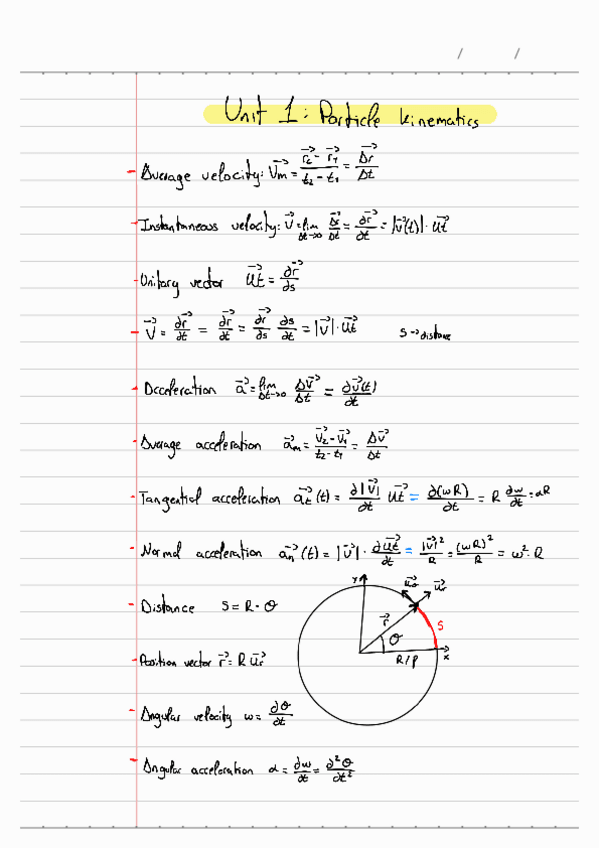 / /
Unit 1: Particle kinematics
- Average velocity: v⃗m = (r⃗2 - r⃗1)/(t2 - t1) = Δr⃗/Δt
- Instantaneous velocity: v⃗ = lim Δt→0 Δr⃗/Δt = ∂r⃗/∂t = |v⃗(t)| · u⃗t
- Unitary vector u⃗t = ∂r⃗/∂s
- v⃗ = ∂r⃗/∂t = ∂r⃗/∂t = ∂r⃗/∂s ∂s/∂t = |v⃗| · u⃗t s → distance
- Acceleration a⃗ = lim Δt→0 Δv⃗/Δt = ∂v⃗(t)/∂t
- Average acceleration a⃗m = (v⃗2 - v⃗1)/(t2 - t1) = Δv⃗/Δt
- Tangential acceleration a⃗t (t) = ∂|v⃗|/∂t u⃗t = ∂(wR)/∂t = R ∂w/∂t = αR
- Normal acceleration a⃗n (t) = |v⃗| · ∂u⃗t/∂t = |v⃗|²/R = (wR)²/R = w² · R
- Distance S = R · θ
- Position vector r⃗ = R u⃗r
- Angular velocity w = ∂θ/∂t
- Angular acceleration α = ∂w/∂t = ∂²θ/∂t²
Y
u⃗θ
u⃗r
r⃗
θ
S
R/P
x